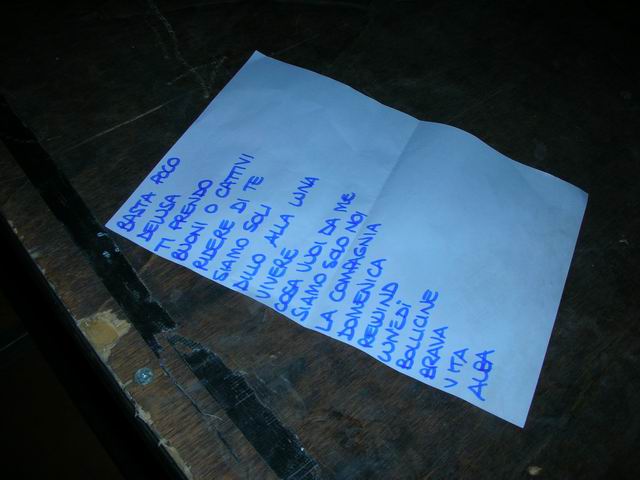 BASTA POCO
DELUSA
TI PRENDO
BUONI O CATTIVI
RIDERE DI TE
SIAMO SOLI
DILLO ALLA LUNA
VIVERE
COSA VUOI DA ME
SIAMO SOLO NOI
LA COMPAGNIA
DOMENICA
REWIND
LUNEDÌ
BOLLICINE
BRAVA
VITA
ALBA